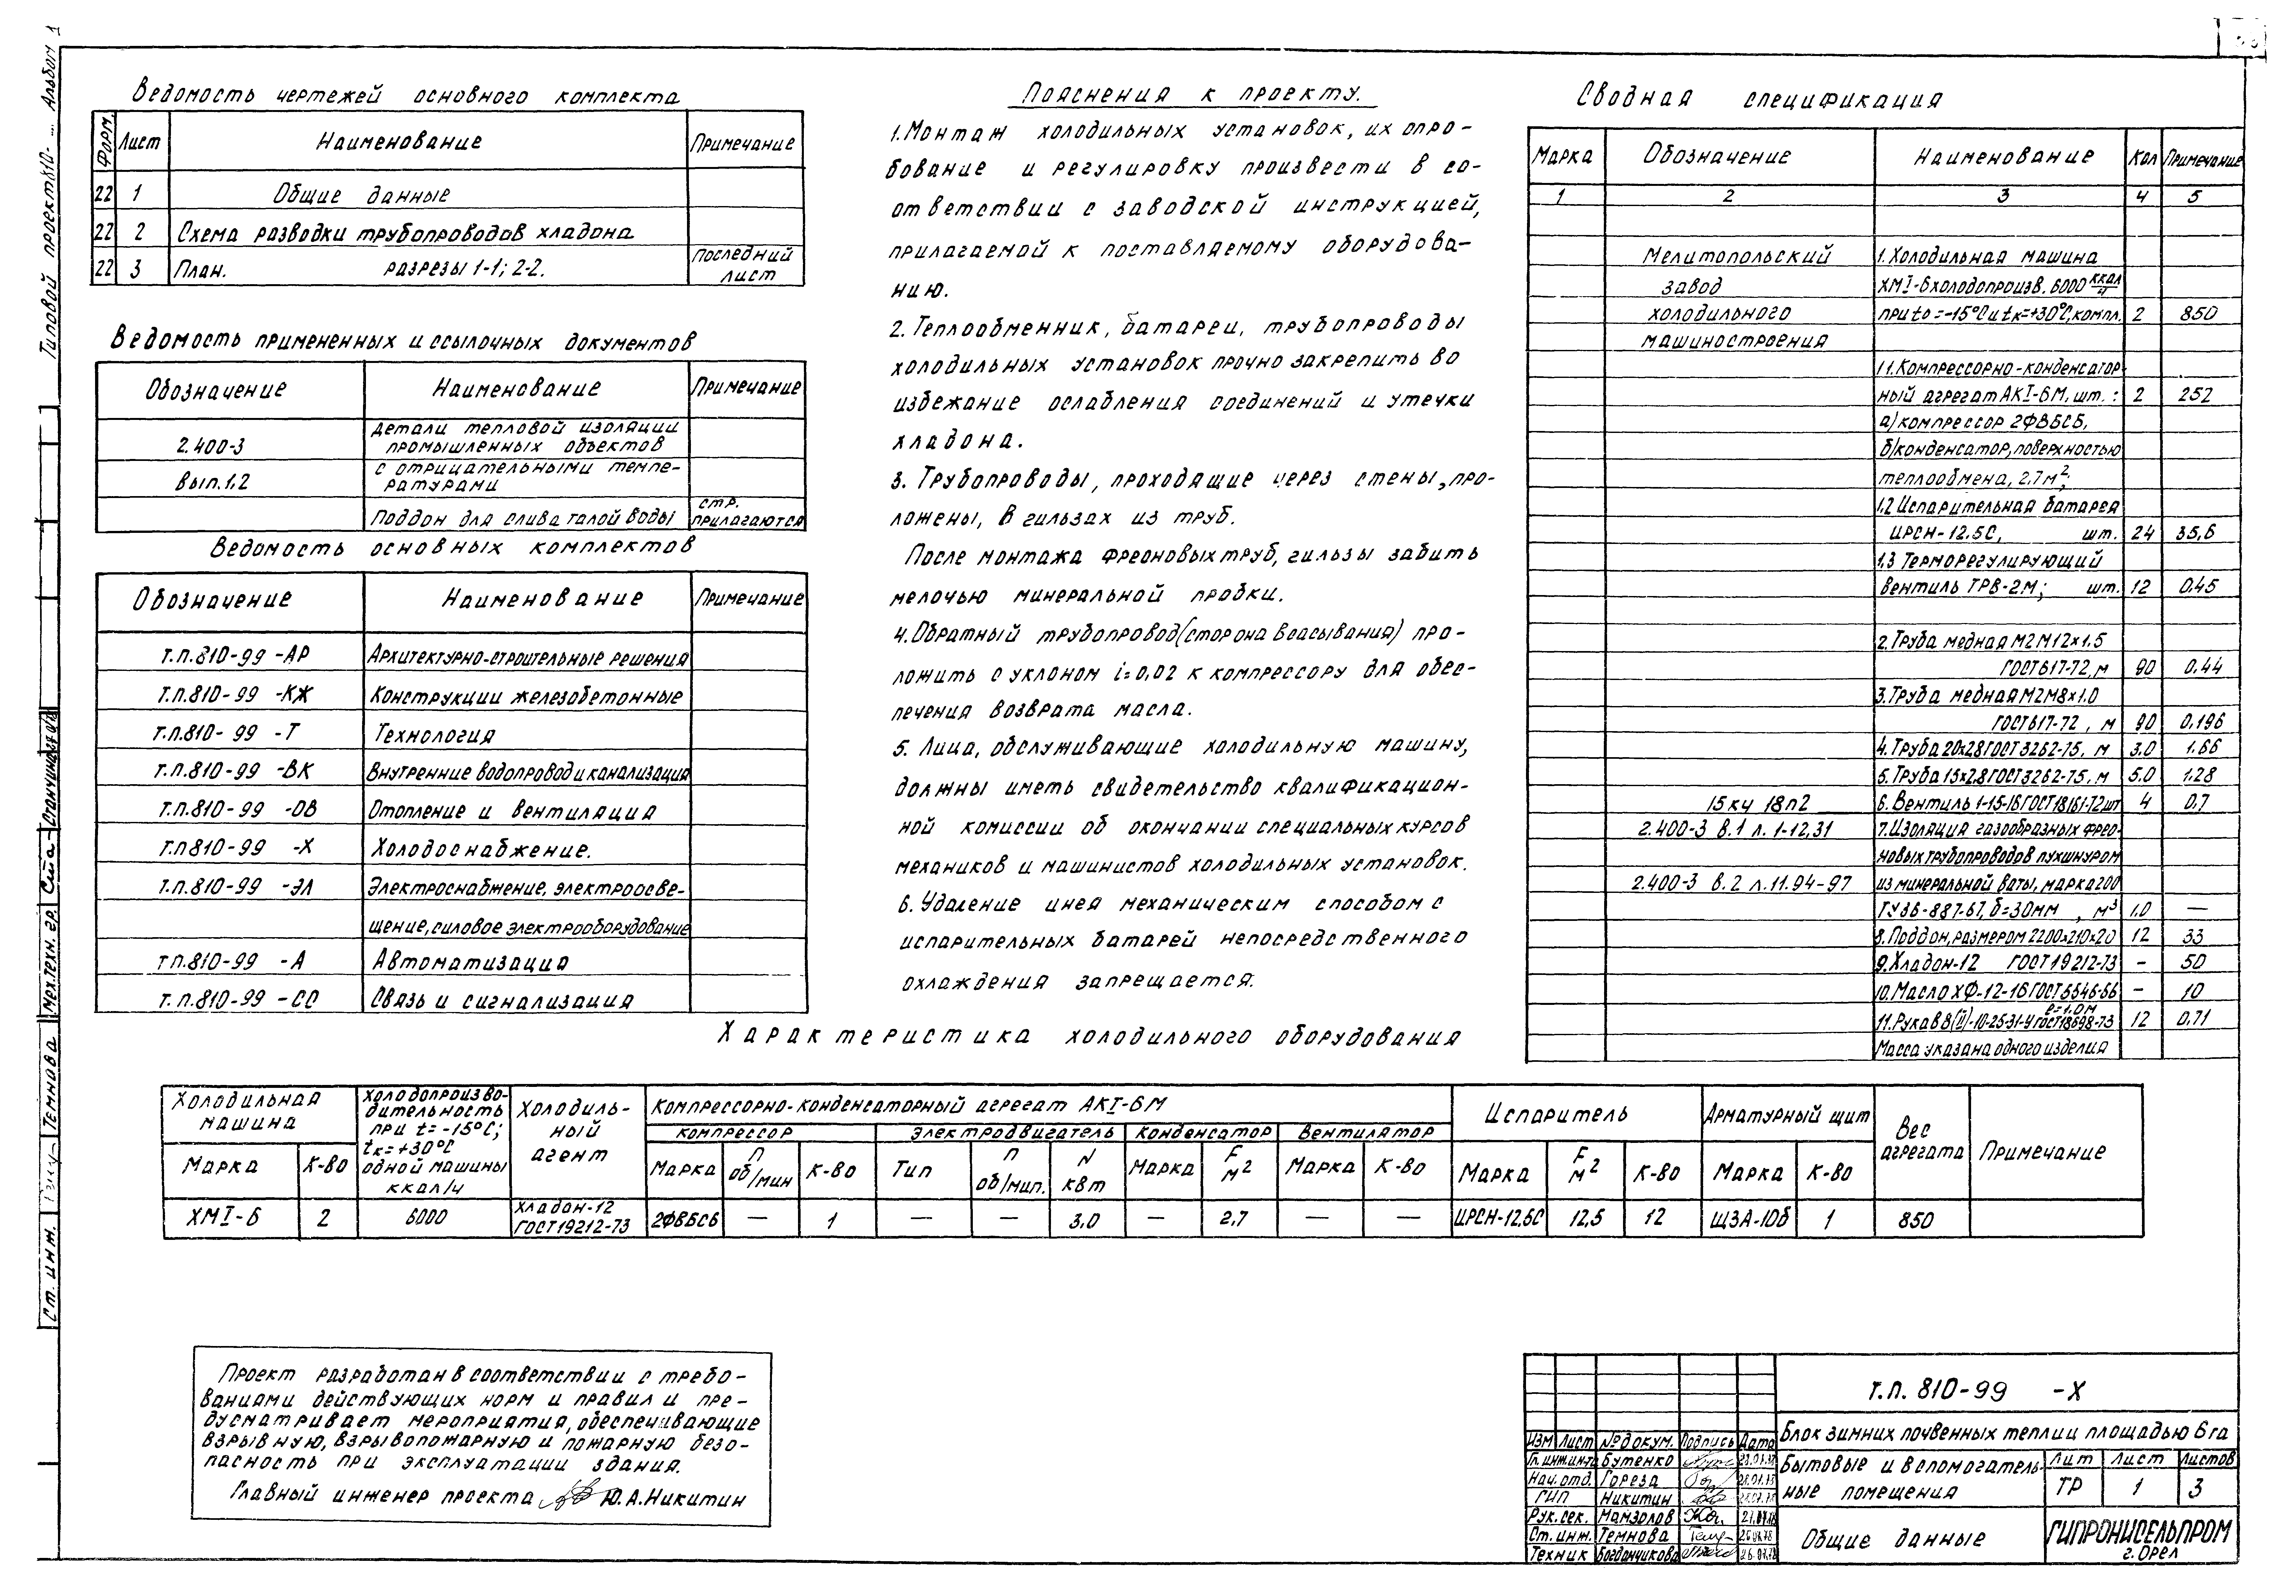 Типовой проект 810- ... Альбом 1
Ведомость чертежей основного комплекта
Форм. Лист Наименование Примечание
22 1 Общие данные
22 2 Схема разводки трубопроводов хладона
22 3 План. разрезы 1-1; 2-2. последний
лист
Ведомость примененных и ссылочных документов
Обозначение Наименование Примечание
детали тепловой изоляции
2.400-3 промышленных объектов
с отрицательными темпе-
Вып.1,2 ратурами
стр.
Поддон для слива талой воды прилагаются
Ведомость основных комплектов
Обозначение Наименование Примечание
т.п.810-99 -АР Архитектурно-строительные решения
т.п.810-99 -КЖ Конструкции железобетонные
т.п.810-99 -Т Технология
т.п.810-99 -ВК Внутренние водопровод и канализация
т.п.810-99 -ОВ Отопление и вентиляция
т.п810-99 -Х Холодоснабжение.
т.п.810-99 -ЭЛ Электроснабжение, электроосве-
щение, силовое электрооборудование
т п.810-99 -А Автоматизация
т.п.810-99 -СС Связь и сигнализация
Пояснения к проекту.
1. Монтаж холодильных установок, их опро-
бование и регулировку произвести в со-
ответствии с заводской инструкцией,
прилагаемой к поставляемому оборудова-
нию.
2. Теплообменник, батареи, трубопроводы
холодильных установок прочно закрепить во
избежание ослабления соединений и утечки
хладона.
3. Трубопроводы, проходящие через стены, про-
ложены, в гильзах из труб.
После монтажа фреоновых труб, гильзы забить
мелочью минеральной пробки.
4. Обратный трубопровод (сторона всасывания) про-
ложить с уклоном i=0,02 к компрессору для обес-
печения возврата масла.
5. Лица, обслуживающие холодильную машину,
должны иметь свидетельство квалификацион-
ной комиссии об окончании специальных курсов
механиков и машинистов холодильных установок.
6. Удаление инея механическим способом с
испарительных батарей непосредственного
охлаждения запрещается.
Сводная спецификация
Марка Обозначение Наименование Кол Примечание
1 2 3 4 5
Мелитопольский 1. Холодильная машина
завод ХМI-6 холодопроизв. 6000 ккал/ч
холодильного при to=-15°С и tк=+30°С, компл. 2 850
машиностроения
1.1. Компрессорно-конденсатор
ный агрегат АКI-6М, шт. : 2 252
а) компрессор 2ФВБС6,
б) конденсатор, поверхностью
теплообмена, 2.7м²;
1.2 Испарительная батарея
ИРСН-12.5С, шт. 24 35,6
1.3 Терморегулирующий
вентиль ТРВ-2М; шт. 12 0.45
2. Труба медная М2М12х1.5
ГОСТ617-72, м 90 0.44
3. Труба медная М2М8х1.0
ГОСТ617-72, м 90 0.196
4. Труба 20х2.8 ГОСТ 3262-75, м 3.0 1.66
5. Труба 15х2.8 ГОСТ3262-75, м 5.0 1.28
15кч 18п2 6. Вентиль 1-15-16 ГОСТ18161-72 шт 4 0.7
2.400-3 в.1 л. 1-12,31 7. Изоляция газообразных фрео-
новых трубопроводов пухшнуром
2.400-3 в.2 л.11.94-97 из минеральной ваты, марка 200
ТУ36-887-67, δ=30мм , м³ 1.0 —
8. Поддон, размером 2200х210х20 12 33
9. Хладон-12 ГОСТ19212-73 - 50
10. Масло ХФ-12-16 ГОСТ5546-66 - 10
ℓ=1.0м
11. Рукав 8(II)-10-25-31-У ГОСТ18698-73 12 0.71
Масса указана одного изделия
Характеристика холодильного оборудования
Холодильная машина Холодопроизво-дительность при t=-15°С; tк=+30°С одной машины ккал/ч Холодиль-ный агент Компрессорно-конденсаторный агрегат АКI-6М Испаритель Арматурный щит Вес агрегата Примечание
компрессор Электродвигатель Конденсатор Вентилятор
Марка К-во Марка п об/мин К-во Тип п об/мин. N квт Марка F м² Марка К-во Марка F м² К-во Марка К-во
ХМI-6 2 6000 Хладон-12 ГОСТ19212-73 2ФВБС6 — 1 — — 3,0 — 2,7 — — ИРСН-12.5С 12,5 12 ЩЗА-10б 1 850
Проект разработан в соответствии с требо-
ваниями действующих норм и правил и пре-
дусматривает мероприятия, обеспечивающие
взрывную, взрывопожарную и пожарную безо-
пасность при эксплуатации здания.
Главный инженер проекта Ю.А.Никитин
т.п. 810-99 -Х
Блок зимних почвенных теплиц площадью 6га
Изм Лист № докум. Подпись Дата
Гл.инж.ин-та Бутенко
Нач.отд. Гореза
ГИП Никитин
Рук.сек. Мамзолов
Ст.инж. Темнова
Техник Богданчикова
Бытовые и вспомогатель-
ные помещения
Лит Лист Листов
ТР 1 3
Общие данные
ГИПРОНИСЕЛЬПРОМ
г.Орел
Ст. инж. Темнова Мех.техн. гр.